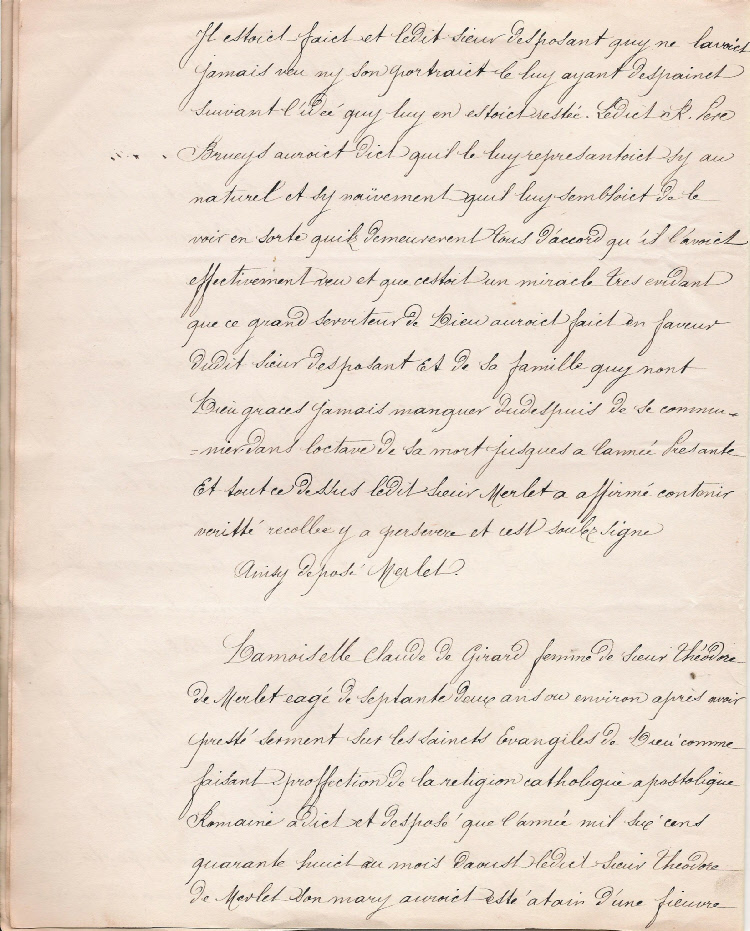 Il estoict faict et ledit sieur desposant quy ne lavoict
jamais veu ny son portraict le luy ayant despainct
suivant l'ideé quy luy en estoict restée. Ledict R. Pere
Brueys auroict dict quil le luy represantoict sy au
naturel et sy naïvement quil luy sembloict de le
voir en sorte quilz demeurerent tous d'accord qu'il l'avoict
effectivement veu et que cestoit un miracle tres evidant
que ce grand serviteur de Dieu auroict faict en faveur
dudit sieur desposant Et de sa famille quy nont
Dieu graces jamais manquer dudespuis de se commu-
=nier dans loctave de sa mort jusques a lannée Presante
Et tout ce dessus ledit sieur Merlet a affirmé contenir
veritté recollee y a persevere et cest soubz signe
Ainsy deposé Merlet.
Damoiselle Claude de Girard femme de sieur Théodore
de Merlet eagé de septante deux ans ou environ apres avoir
presté serment sur les saincts Evangiles de Dieu comme
faisant proffection de la religion catholique apostolique
Romaine a dict et desposé que l'année mil six cens
quarante huict au mois daoust ledict sieur Theodore
de Merlet son mary auroict esté atain d'une fieuvre